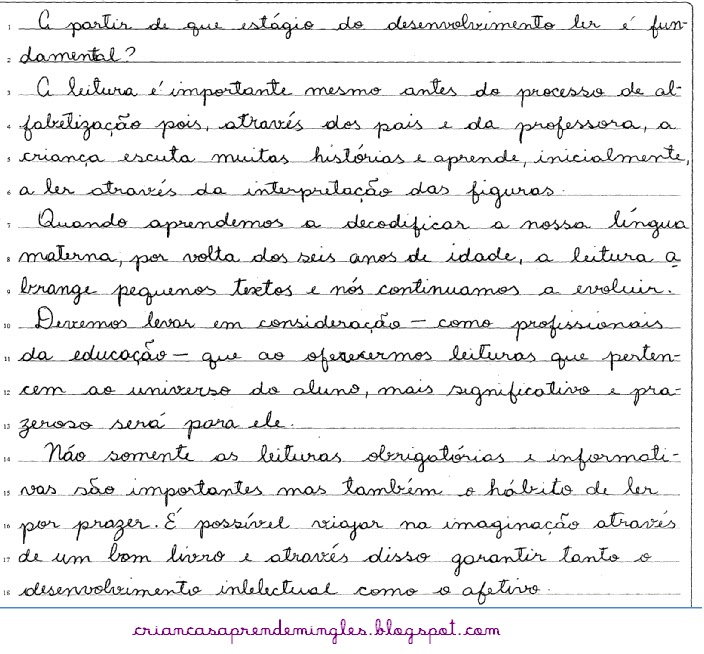 1 A partir de que estágio do desenvolvimento ler é fun-
2 damental?
3 A leitura é importante mesmo antes do processo de al-
4 fabetização pois, através dos pais e da professora, a
5 criança escuta muitas histórias e aprende, inicialmente,
6 a ler através da interpretação das figuras.
7 Quando aprendemos a decodificar a nossa língua
8 materna, por volta dos seis anos de idade, a leitura a
9 brange pequenos textos e nós continuamos a evoluir.
10 Devemos levar em consideração – como profissionais
11 da educação – que ao oferecermos leituras que perten-
12 cem ao universo do aluno, mais significativo e pra-
13 zeroso será para ele.
14 Não somente as leituras obrigatórias e informati-
15 vas são importantes mas também o hábito de ler
16 por prazer. É possível viajar na imaginação através
17 de um bom livro e através disso garantir tanto o
18 desenvolvimento intelectual como o afetivo.
criancasaprendemingles.blogspot.com